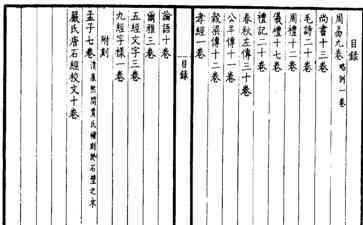 目錄
周易九卷 略例一卷
尚書十三卷
毛詩二十卷
周禮十二卷
儀禮十七卷
禮記二十卷
春秋左傳三十卷
公羊傳十一卷
穀梁傳十二卷
孝經一卷
目錄
論語十卷
爾雅三卷
五經文字三卷
九經字樣一卷
附刻
孟子七卷 清康熙間賈氏補刻於石壁之末
嚴氏唐石經校文十卷